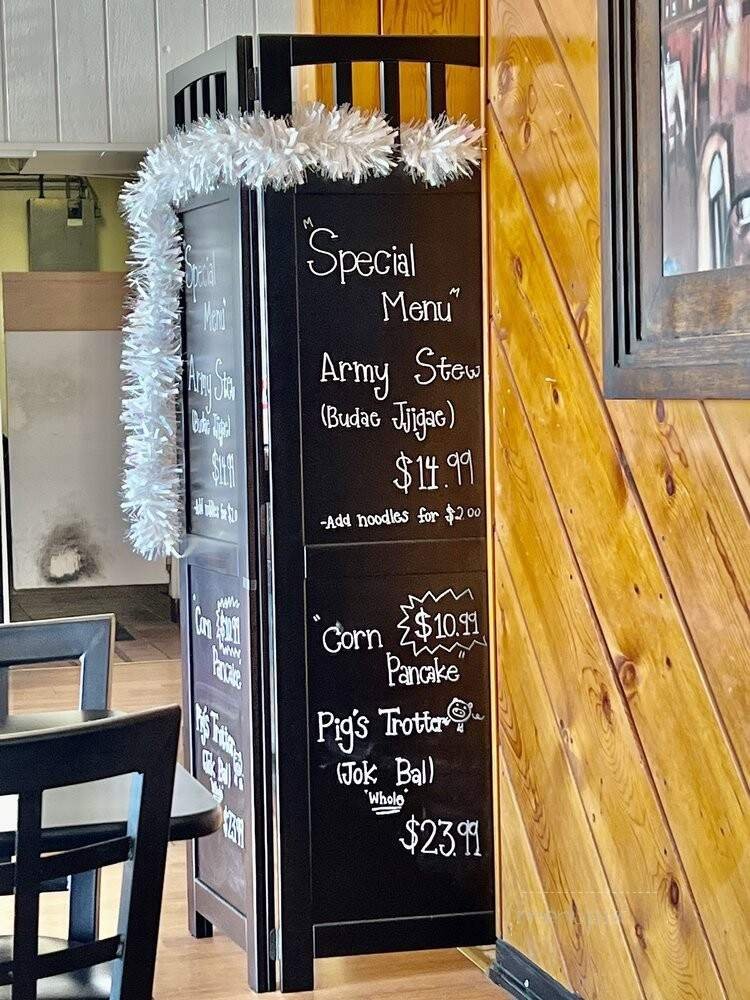 Special
Menu
Army Stew
(Budae Jjigae)
$14.99
-Add noodles for $2.00
Corn
Pancake
Pig's Trotter
(Jok Bal)
$23.99
"Special
Menu"
Army Stew
(Budae Jjigae)
$14.99
-Add noodles for $2.00
"Corn $10.99
Pancake"
Pig's Trotter
(Jok Bal)
"Whole"
$23.99